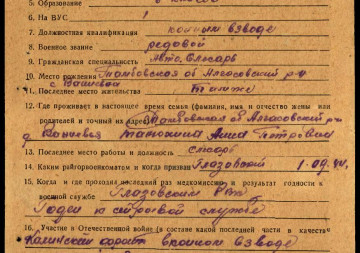 5. Образование
6. На ВУС
7. Должностная квалификация конный взвод
8. Военное звание рядовой
9. Гражданская специальность Авто Слесарь
10. Место рождения Тамбовская об Алгасовский р-н
11. Последнее место жительства
12. Где проживает в настоящее время семья (фамилия, имя и отчество жены или
родителей и точный их адрес) Тамбовская об Алгасовский р-н
Анна Петровна
13. Последнее место работы и должность слесарь
14. Каким райгорвоенкоматом и когда призван Глазовский 1-09,
15. Когда и где проходил последний раз медкомиссию и результат годности к
военной службе Глазовским РВК
Годен к строевой службе
16. Участие в Отечественной войне (в составе какой последней части в качестве
фронт в конном взводе